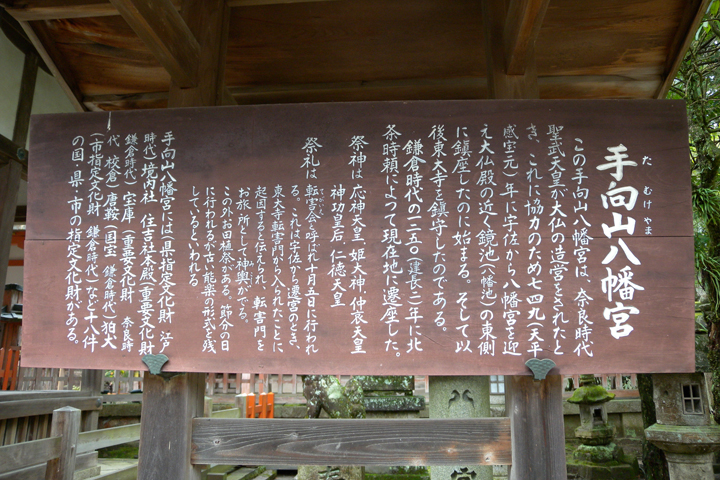 手向山八幡宮
たむけやま
この手向山八幡宮は、奈良時代
聖武天皇が大仏の造営をされたと
き、これに協力のため七四九(天平
感宝元)年に宇佐から八幡宮を迎
え大仏殿の近く鏡池(八幡池)の東側
に鎮座したのに始まる。そして以
後東大寺を鎮守したのである。
鎌倉時代の一二五〇(建長二)年に北
条時頼によって現在地に遷座した。
祭神は 応神天皇 姫大神 仲哀天皇
神功皇后 仁徳天皇
祭礼は 転害会と呼ばれ十月五日に行われ
る。これは宇佐から遷宮のとき、
東大寺転害門から入られたことに
起因すると伝えられ、転害門を
お旅所として神輿がでる。
この外お田植祭がある。節分の日
に行われるが古い能楽の形式を残
しているといわれる
手向山八幡宮には(県指定文化財 江戸
時代)境内社 住吉社本殿(重要文化財
鎌倉時代)宝庫(重要文化財 奈良時
代 校倉)唐鞍(国宝 鎌倉時代)狛犬
(市指定文化財 鎌倉時代)など十八件
の国・県・市の指定文化財がある。